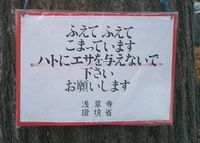 ふえて ふえて
こまっています
ハトにエサを与えないで
下さい
お願いします
浅草寺
環境省